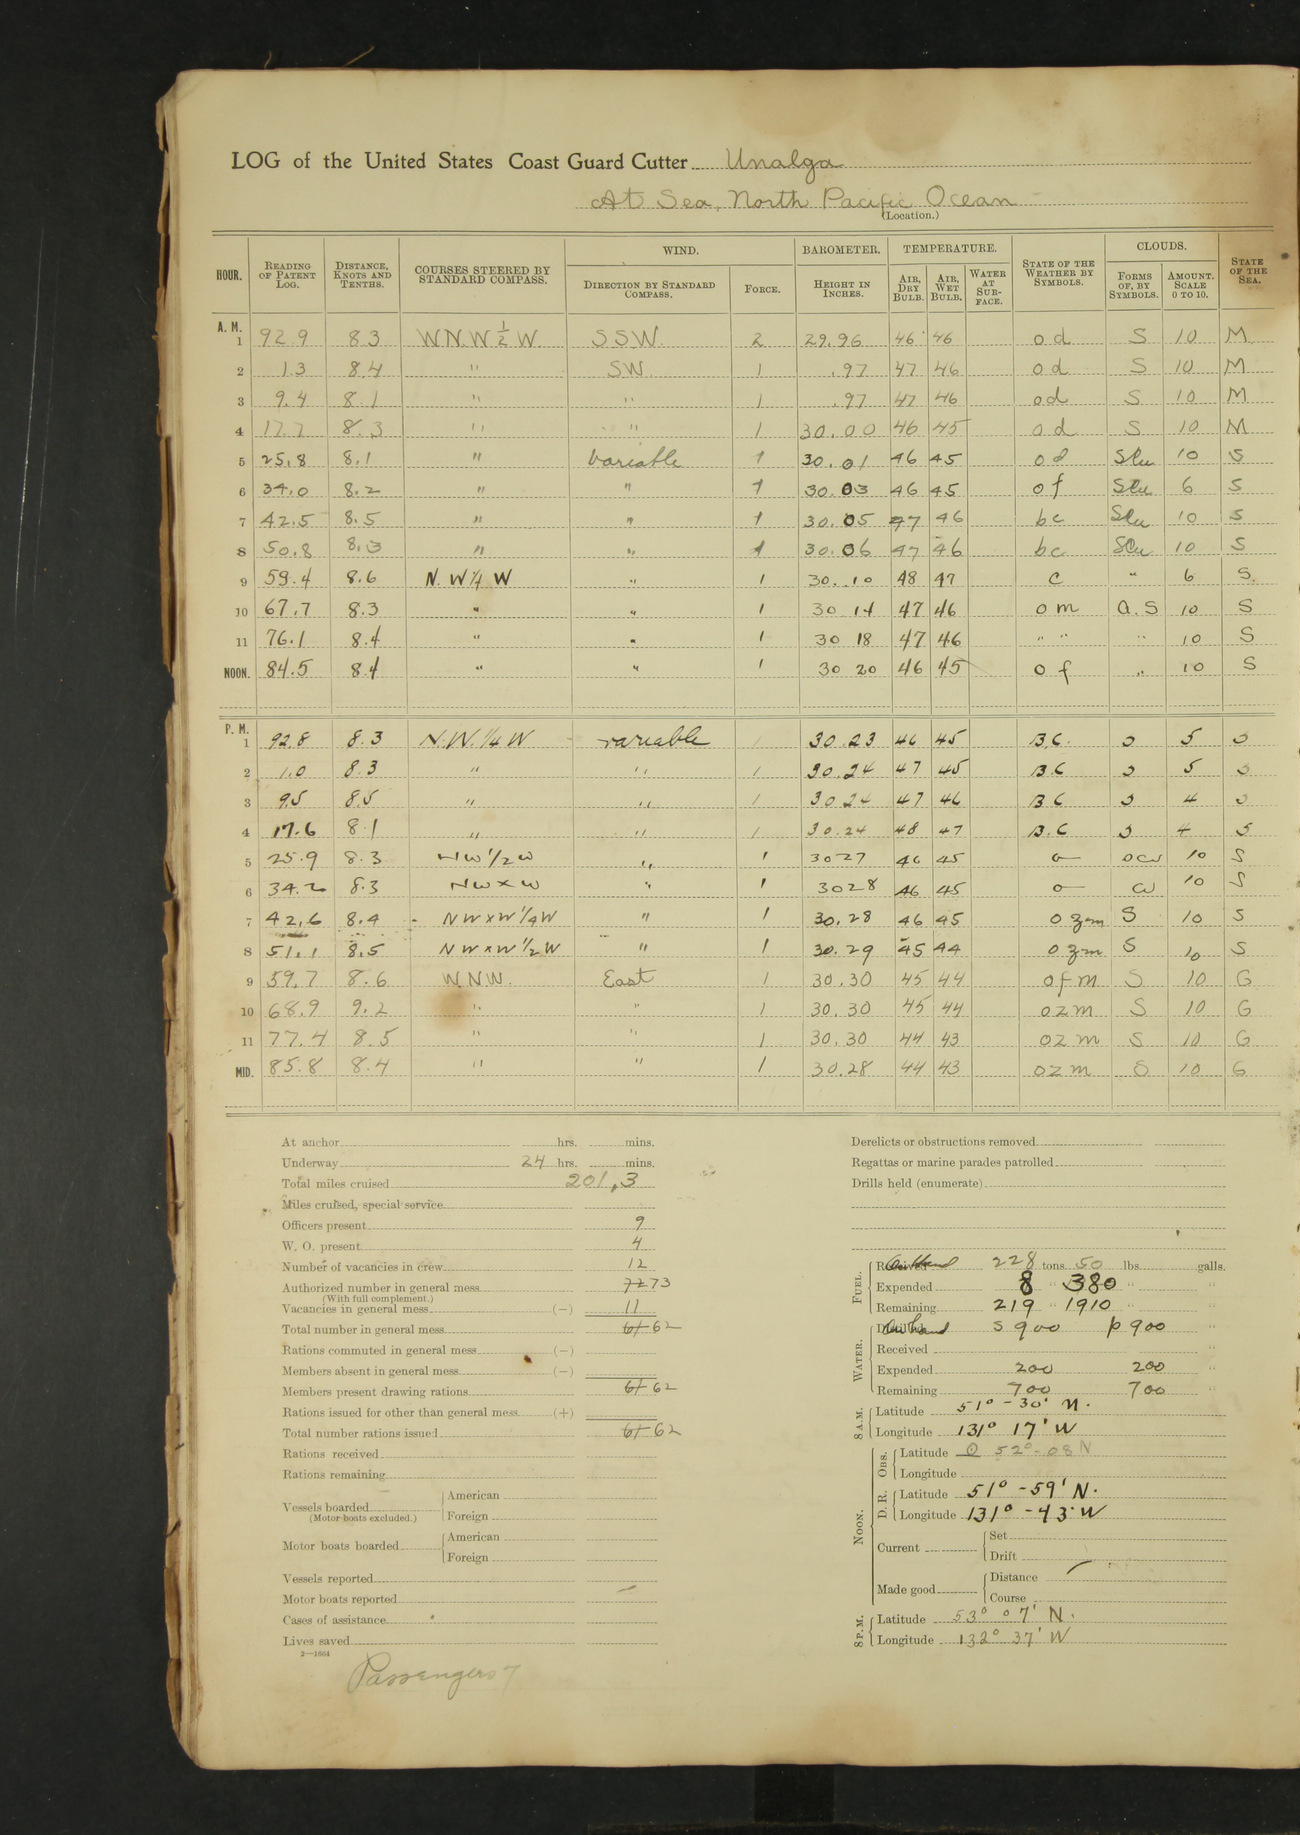 LOG of the United States Coast Guard Cutter Unalga
At Sea, North Pacific Ocean
(Location.)
HOUR. READING OF PATENT LOG. DISTANCE, KNOTS AND TENTHS. COURSES STEERED BY STANDARD COMPASS. WIND. DIRECTION BY STANDARD COMPASS. FORCE. BAROMETER. HEIGHT IN INCHES. TEMPERATURE. AIR, DRY BULB. AIR, WET BULB. WATER AT SURFACE. STATE OF THE WEATHER BY SYMBOLS. CLOUDS. FORMS OF, BY SYMBOLS. AMOUNT. SCALE 0 TO 10. STATE OF THE SEA.
A. M.
1 92.9 8.3 WNW ½ W SSW. 2 29.96 46 46 o d S 10 M
2 1.3 8.4 " SW. 1 .97 47 46 o d S 10 M
3 9.4 8.1 " " 1 .97 47 46 o d S 10 M
4 17.7 8.3 " " 1 30.00 46 45 o d S 10 M
5 25.8 8.1 " Variable 1 30.01 46 45 o d 10 S
6 34.0 8.2 " " 1 30.03 46 45 o f 6 S
7 42.5 8.5 " " 1 30.05 47 46 bc 10 S
8 50.8 8.3 " " 1 30.06 47 46 bc 10 S
9 59.4 8.6 N. W ¼ W " 1 30.10 48 47 c " 6 S.
10 67.7 8.3 " " 1 30 14 47 46 o m a.s 10 S
11 76.1 8.4 " " 1 30 18 47 46 " " " 10 S
NOON. 84.5 8.4 " " 1 30 20 46 45 o f " 10 S
P. M.
1 92.8 8.3 N.W. ¼ W variable 1 30.23 46 45 B.C. S 5 S
2 1.0 8.3 " " 1 30.24 47 45 B.C S 5 S
3 9.5 8.5 " " 1 30 24 47 46 B C S 4 S
4 17.6 8.1 " " 1 30.24 48 47 B.C S 4 S
5 25.9 8.3 NW ½ W " 1 3027 46 45 o 10 S
6 34.2 8.3 NW x W " 1 3028 46 45 o 10 S
7 42.6 8.4 NW x W ¼ W " 1 30.28 46 45 o z m S 10 S
8 51.1 8.5 NW x W ½ W " 1 30.29 45 44 o z m S 10 S
9 59.7 8.6 W.N.W. East 1 30.30 45 44 o f m S 10 G
10 68.9 9.2 " " 1 30.30 45 44 o z m S 10 G
11 77.4 8.5 " " 1 30.30 44 43 o z m S 10 G
MID. 85.8 8.4 " " 1 30.28 44 43 o z m S 10 G
At anchor hrs. mins.
Underway 24 hrs. mins.
Total miles cruised 201.3
Miles cruised, special service
Officers present 9
W. O. present 4
Number of vacancies in crew 12
Authorized number in general mess 72 73
(With full complement.)
Vacancies in general mess (—) 11
Total number in general mess 61 62
Rations commuted in general mess (—)
Members absent in general mess (—)
Members present drawing rations 61 62
Rations issued for other than general mess (+)
Total number rations issued 61 62
Rations received
Rations remaining
Vessels boarded American
(Motor boats excluded.) Foreign
Motor boats boarded American
Foreign
Vessels reported
Motor boats reported
Cases of assistance
Lives saved
2—1664
Passengers 7
Derelicts or obstructions removed
Regattas or marine parades patrolled
Drills held (enumerate)
FUEL.
On hand 228 tons 50 lbs. galls.
Expended 8 " 380 " "
Remaining 219 " 1910 " "
WATER.
On hand S 900 P 900 "
Received "
Expended 200 200 "
Remaining 700 700 "
8 A.M.
Latitude 51° - 30' N.
Longitude 131° 17' W
NOON.
OBS.
Latitude 52° - 08 N
Longitude
D. R.
Latitude 51° - 59' N.
Longitude 131° - 43' W
Current Set
Drift
Made good Distance
Course
8 P.M.
Latitude 53° 07' N.
Longitude 132° 37' W